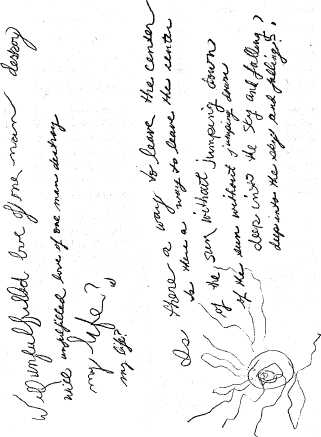 Will unfulfilled love of one man destroy
will unfulfilled love of one man destroy
my life?
my life?
Is there a way to leave the center
Is there a way to leave the center
of the sun without jumping down
of the sun without jumping down
deep into the sky and falling?
deep into the sky and falling?